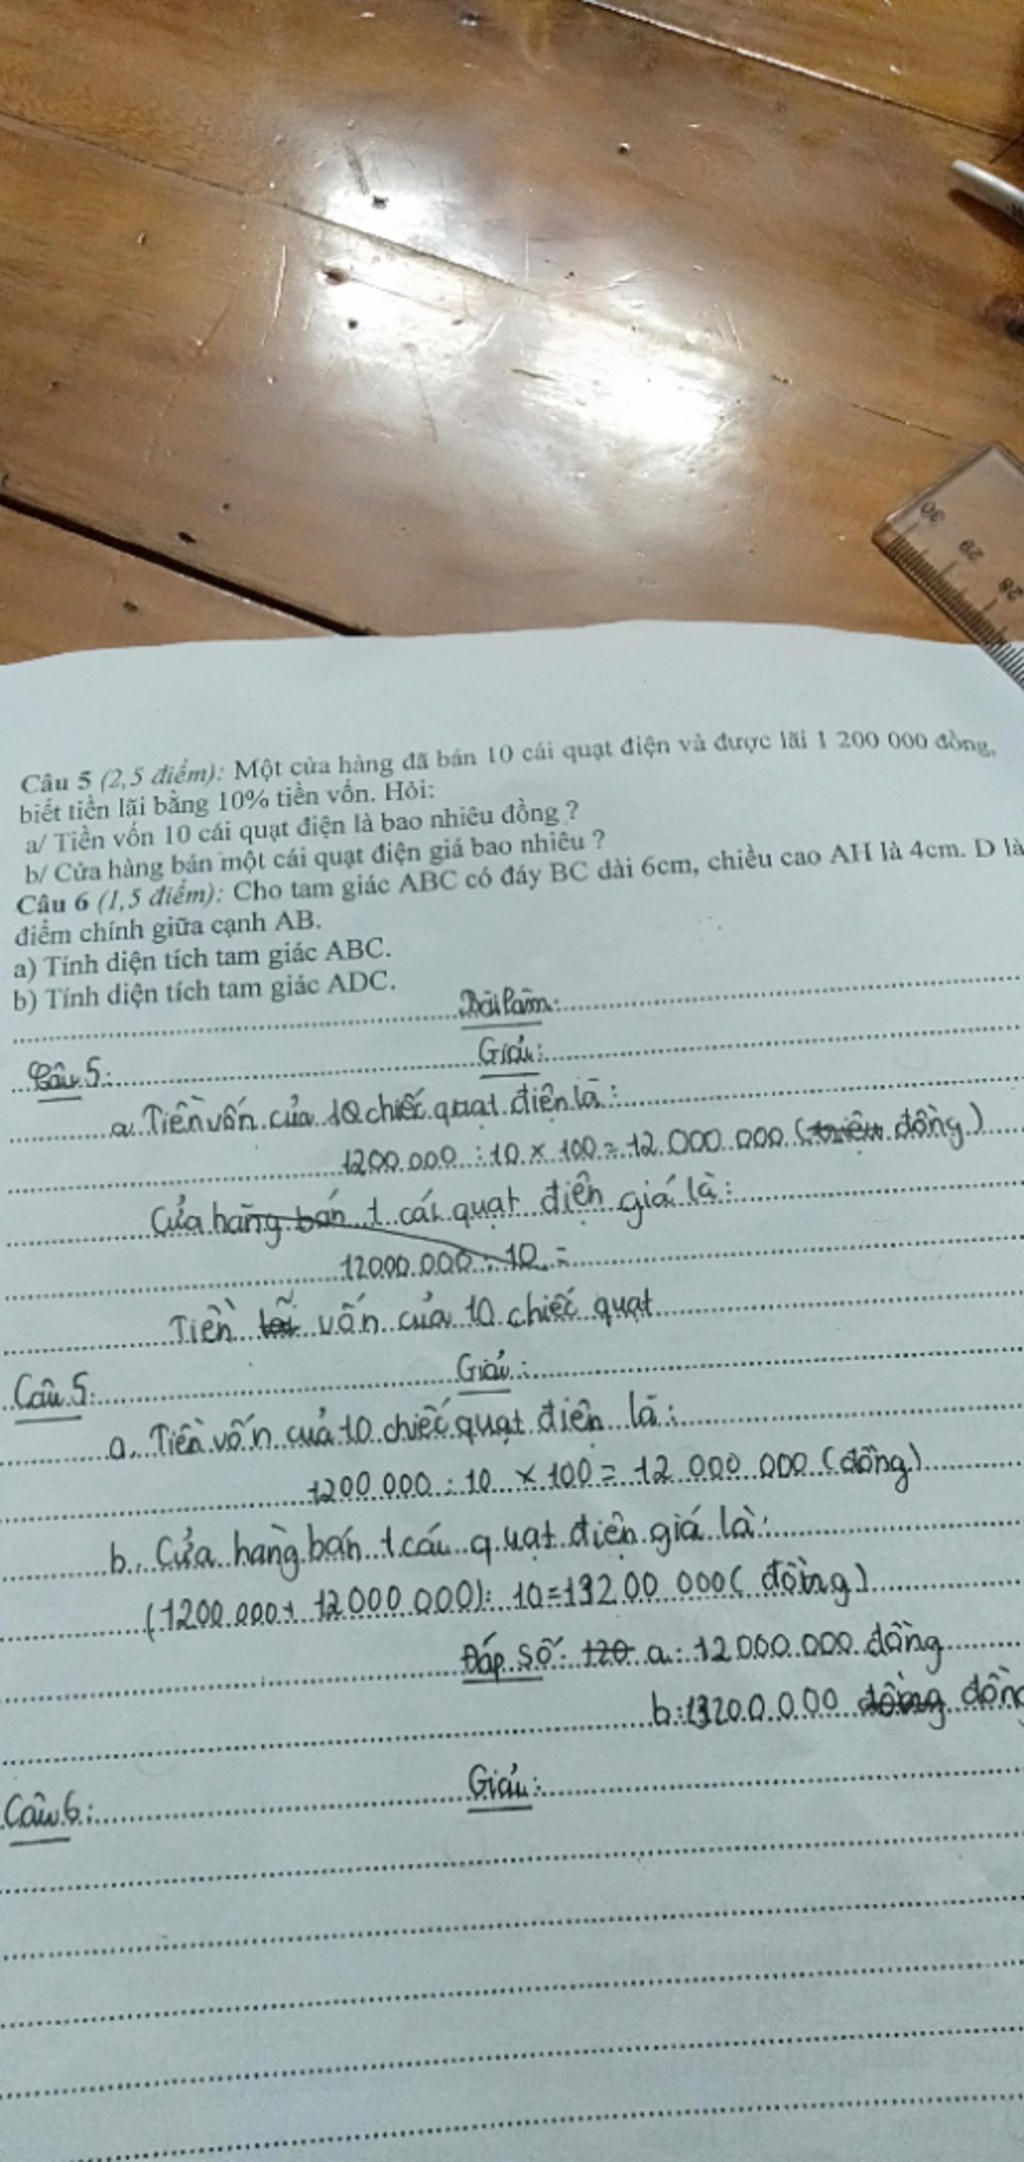 30 29 28
Câu 5 (2,5 điểm): Một cửa hàng đã bán 10 cái quạt điện và được lãi 1 200 000 đồng,
biết tiền lãi bằng 10% tiền vốn. Hỏi:
a/ Tiền vốn 10 cái quạt điện là bao nhiêu đồng ?
b/ Cửa hàng bán một cái quạt điện giá bao nhiêu ?
Câu 6 (1,5 điểm): Cho tam giác ABC có đáy BC dài 6cm, chiều cao AH là 4cm. D là
điểm chính giữa cạnh AB.
a) Tính diện tích tam giác ABC.
b) Tính diện tích tam giác ADC.
Bài làm:
Câu 5: Giải:
a. Tiền vốn của 10 chiếc quạt điện là:
1200 000 : 10 × 100 = 12 000 000 (triệu đồng)
Cửa hàng bán 1 cái quạt điện giá là:
12000 000 : 10 =
Tiền lãi vốn của 10 chiếc quạt
Câu 5: Giải:
a. Tiền vốn của 10 chiếc quạt điện là:
1200 000 : 10 × 100 = 12 000 000 (đồng)
b. Cửa hàng bán 1 cái quạt điện giá là:
(1200 000 + 12 000 000) : 10 = 13200 000 (đồng)
Đáp số: 120 a: 12 000 000 đồng
b: 13200 000 đồng đồng
Câu 6: Giải: